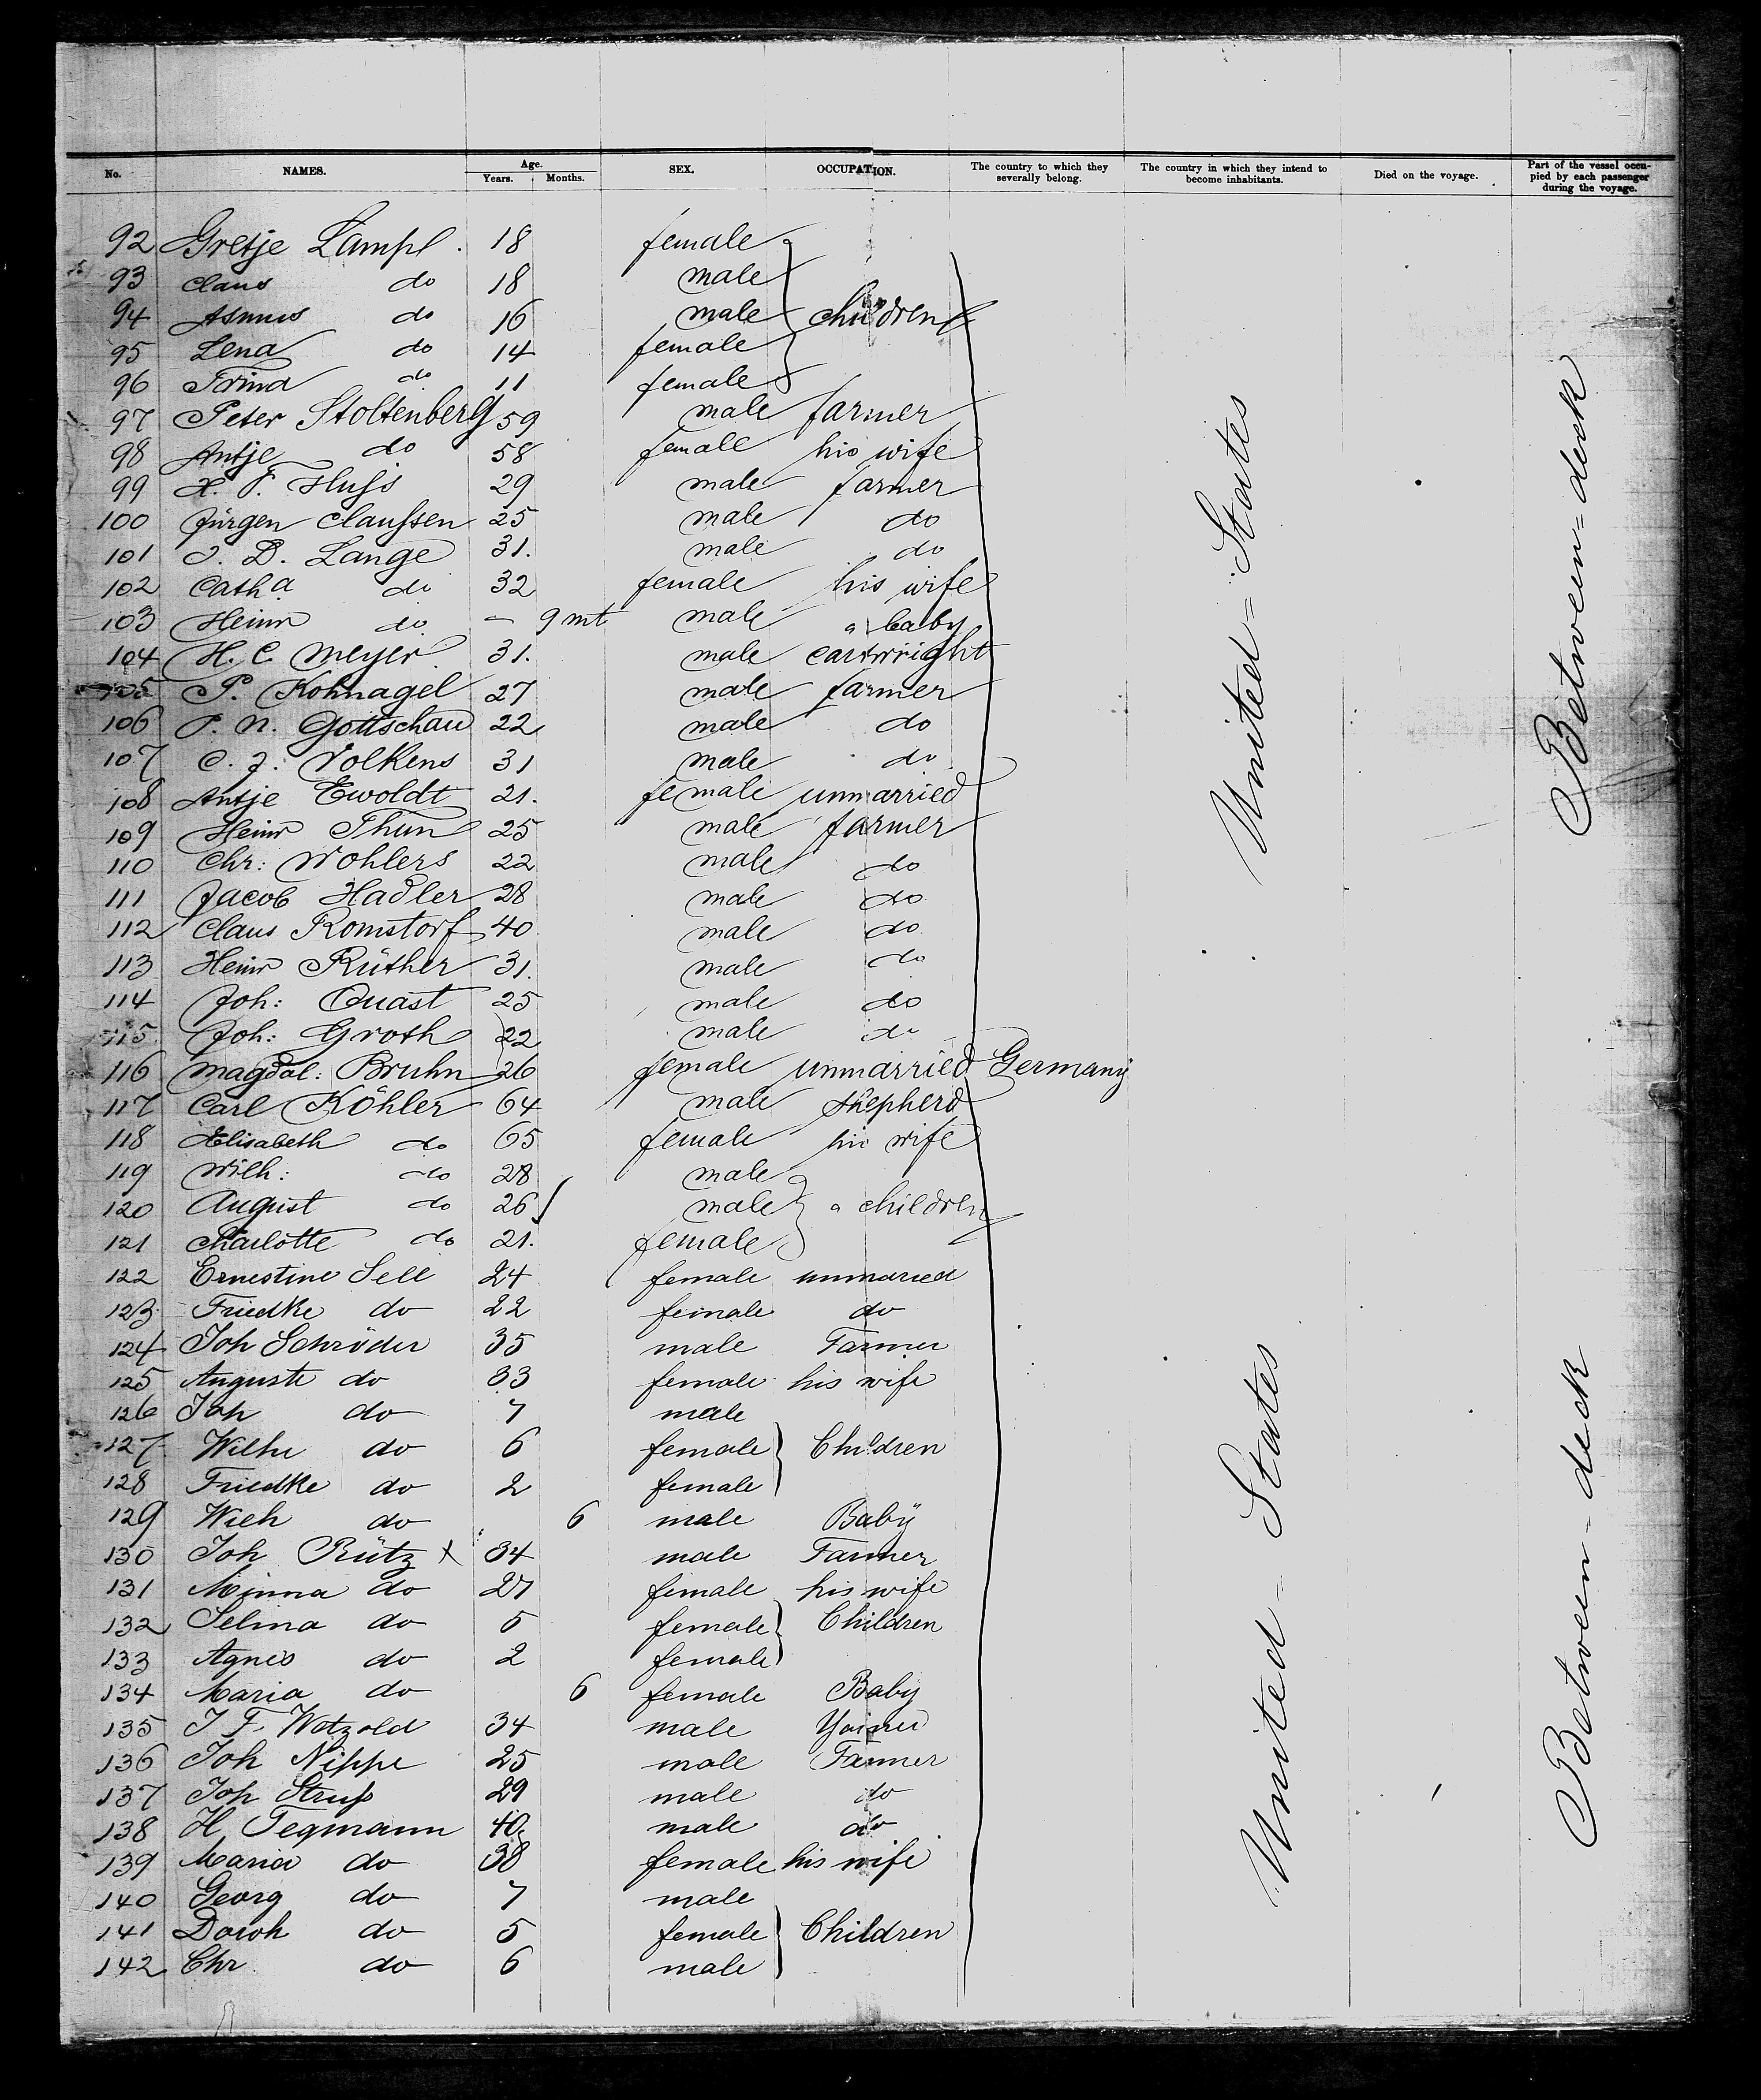 No. NAMES. Age. Years. Months. SEX. OCCUPATION. The country to which they severally belong. The country in which they intend to become inhabitants. Died on the voyage. Part of the vessel occupied by each passenger during the voyage.
92 Gretje Lampl. 18 female
93 Claus do 18 male
94 Asmus do 16 male children
95 Lena do 14 female
96 Trina do 11 female
97 Peter Stoltenberg 59 male farmer
98 Antje do 58 female his wife
99 Huss 29 male farmer
100 Jürgen Claussen 25 male do
101 J. D. Lange 31. male do
102 Catha do 32 female his wife
103 Heinr do – 9 mt male a baby
104 H. C. Meyer 31. male cartwright
105 P. Kohnagel 27 male farmer
106 P. N. Gottschau 22 male do
107 C. J. Volkens 31 male do
108 Antje Ewoldt 21. female unmarried
109 Heinr Thun 25 male farmer
110 Chr: Wohlers 22 male do
111 Jacob Hadler 28 male do
112 Claus Romstorf 40 male do
113 Heinr Rüther 31. male do
114 Joh: Quast 25 male do
115 Joh: Groth 22 male do
116 Magdal: Bruhn 26 female unmarried Germany
117 Carl Köhler 64 male shepherd
118 Elisabeth do 65 female his wife
119 Wilh: do 28 male
120 August do 26 male a children
121 Charlotte do 21. female
122 Ernestine Sell 24 female unmaried
123 Friedke do 22 female do
124 Joh Schröder 35 male Farmer
125 Auguste do 33 female his wife
126 Joh do 7 male
127 Wilhe do 6 female Children
128 Friedke do 2 female
129 Wilh do 6 male Baby
130 Joh Rütz x 34 male Farmer
131 Minna do 27 female his wife
132 Selma do 5 female Children
133 Agnes do 2 female
134 Maria do 6 female Baby
135 J F. Wetzold 34 male Yoiner
136 Joh Nippe 25 male Farmer
137 Joh Struss 29 male do
138 H. Tegmann 40 male do
139 Maria do 38 female his wife
140 Georg do 7 male
141 Doroh do 5 female Children
142 Chr do 6 male
United = States
United – States
Between = deck
Between – deck